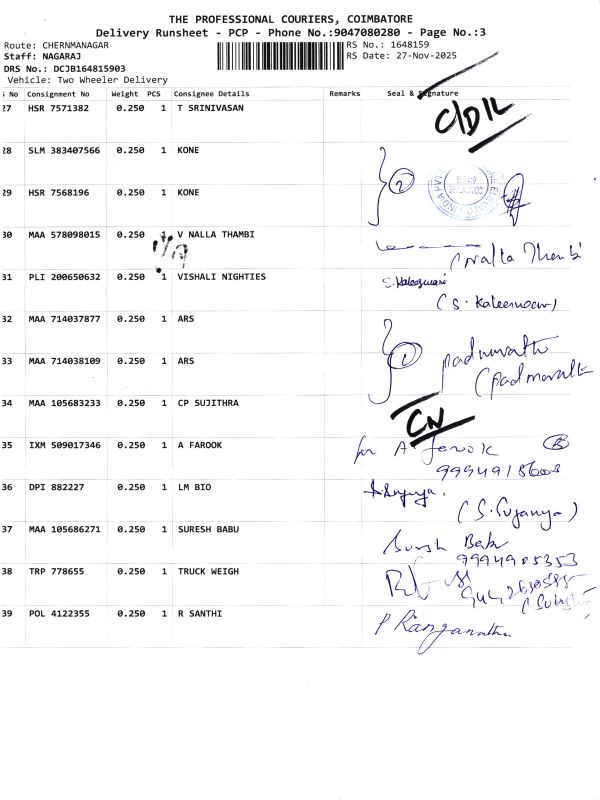 THE PROFESSIONAL COURIERS, COIMBATORE
Delivery Runsheet - PCP - Phone No.:9047080280 - Page No.:3
Route: CHERMANAGAR
RS No.: 1648159
Staff: NAGARAJ
RS Date: 27-Nov-2025
DRS No.: DCJB164815903
Vehicle: Two Wheeler Delivery
No Consignment No Weight PCS Consignee Details Remarks Seal & Signature
27 HSR 7571382 0.250 1 T SRINIVASAN
C/D/L
28 SLM 383407566 0.250 1 KONE
2
29 HSR 7568196 0.250 1 KONE
30 MAA 578098015 0.250 1 V NALLA THAMBI
(Nalla Thambi
31 PLI 200650632 0.250 1 VISHALI NIGHTIES
S. Kaleeswari
32 MAA 714037877 0.250 1 ARS
33 MAA 714038109 0.250 1 ARS
1
34 MAA 105683233 0.250 1 CP SUJITHRA
CN
35 IXM 509017346 0.250 1 A FAROOK
for A. Farook
36 DPI 882227 0.250 1 LM BIO
(S. Suganya)
37 MAA 105686271 0.250 1 SURESH BABU
Suresh Babu
38 TRP 778655 0.250 1 TRUCK WEIGH
39 POL 4122355 0.250 1 R SANTHI
P Ranganathan